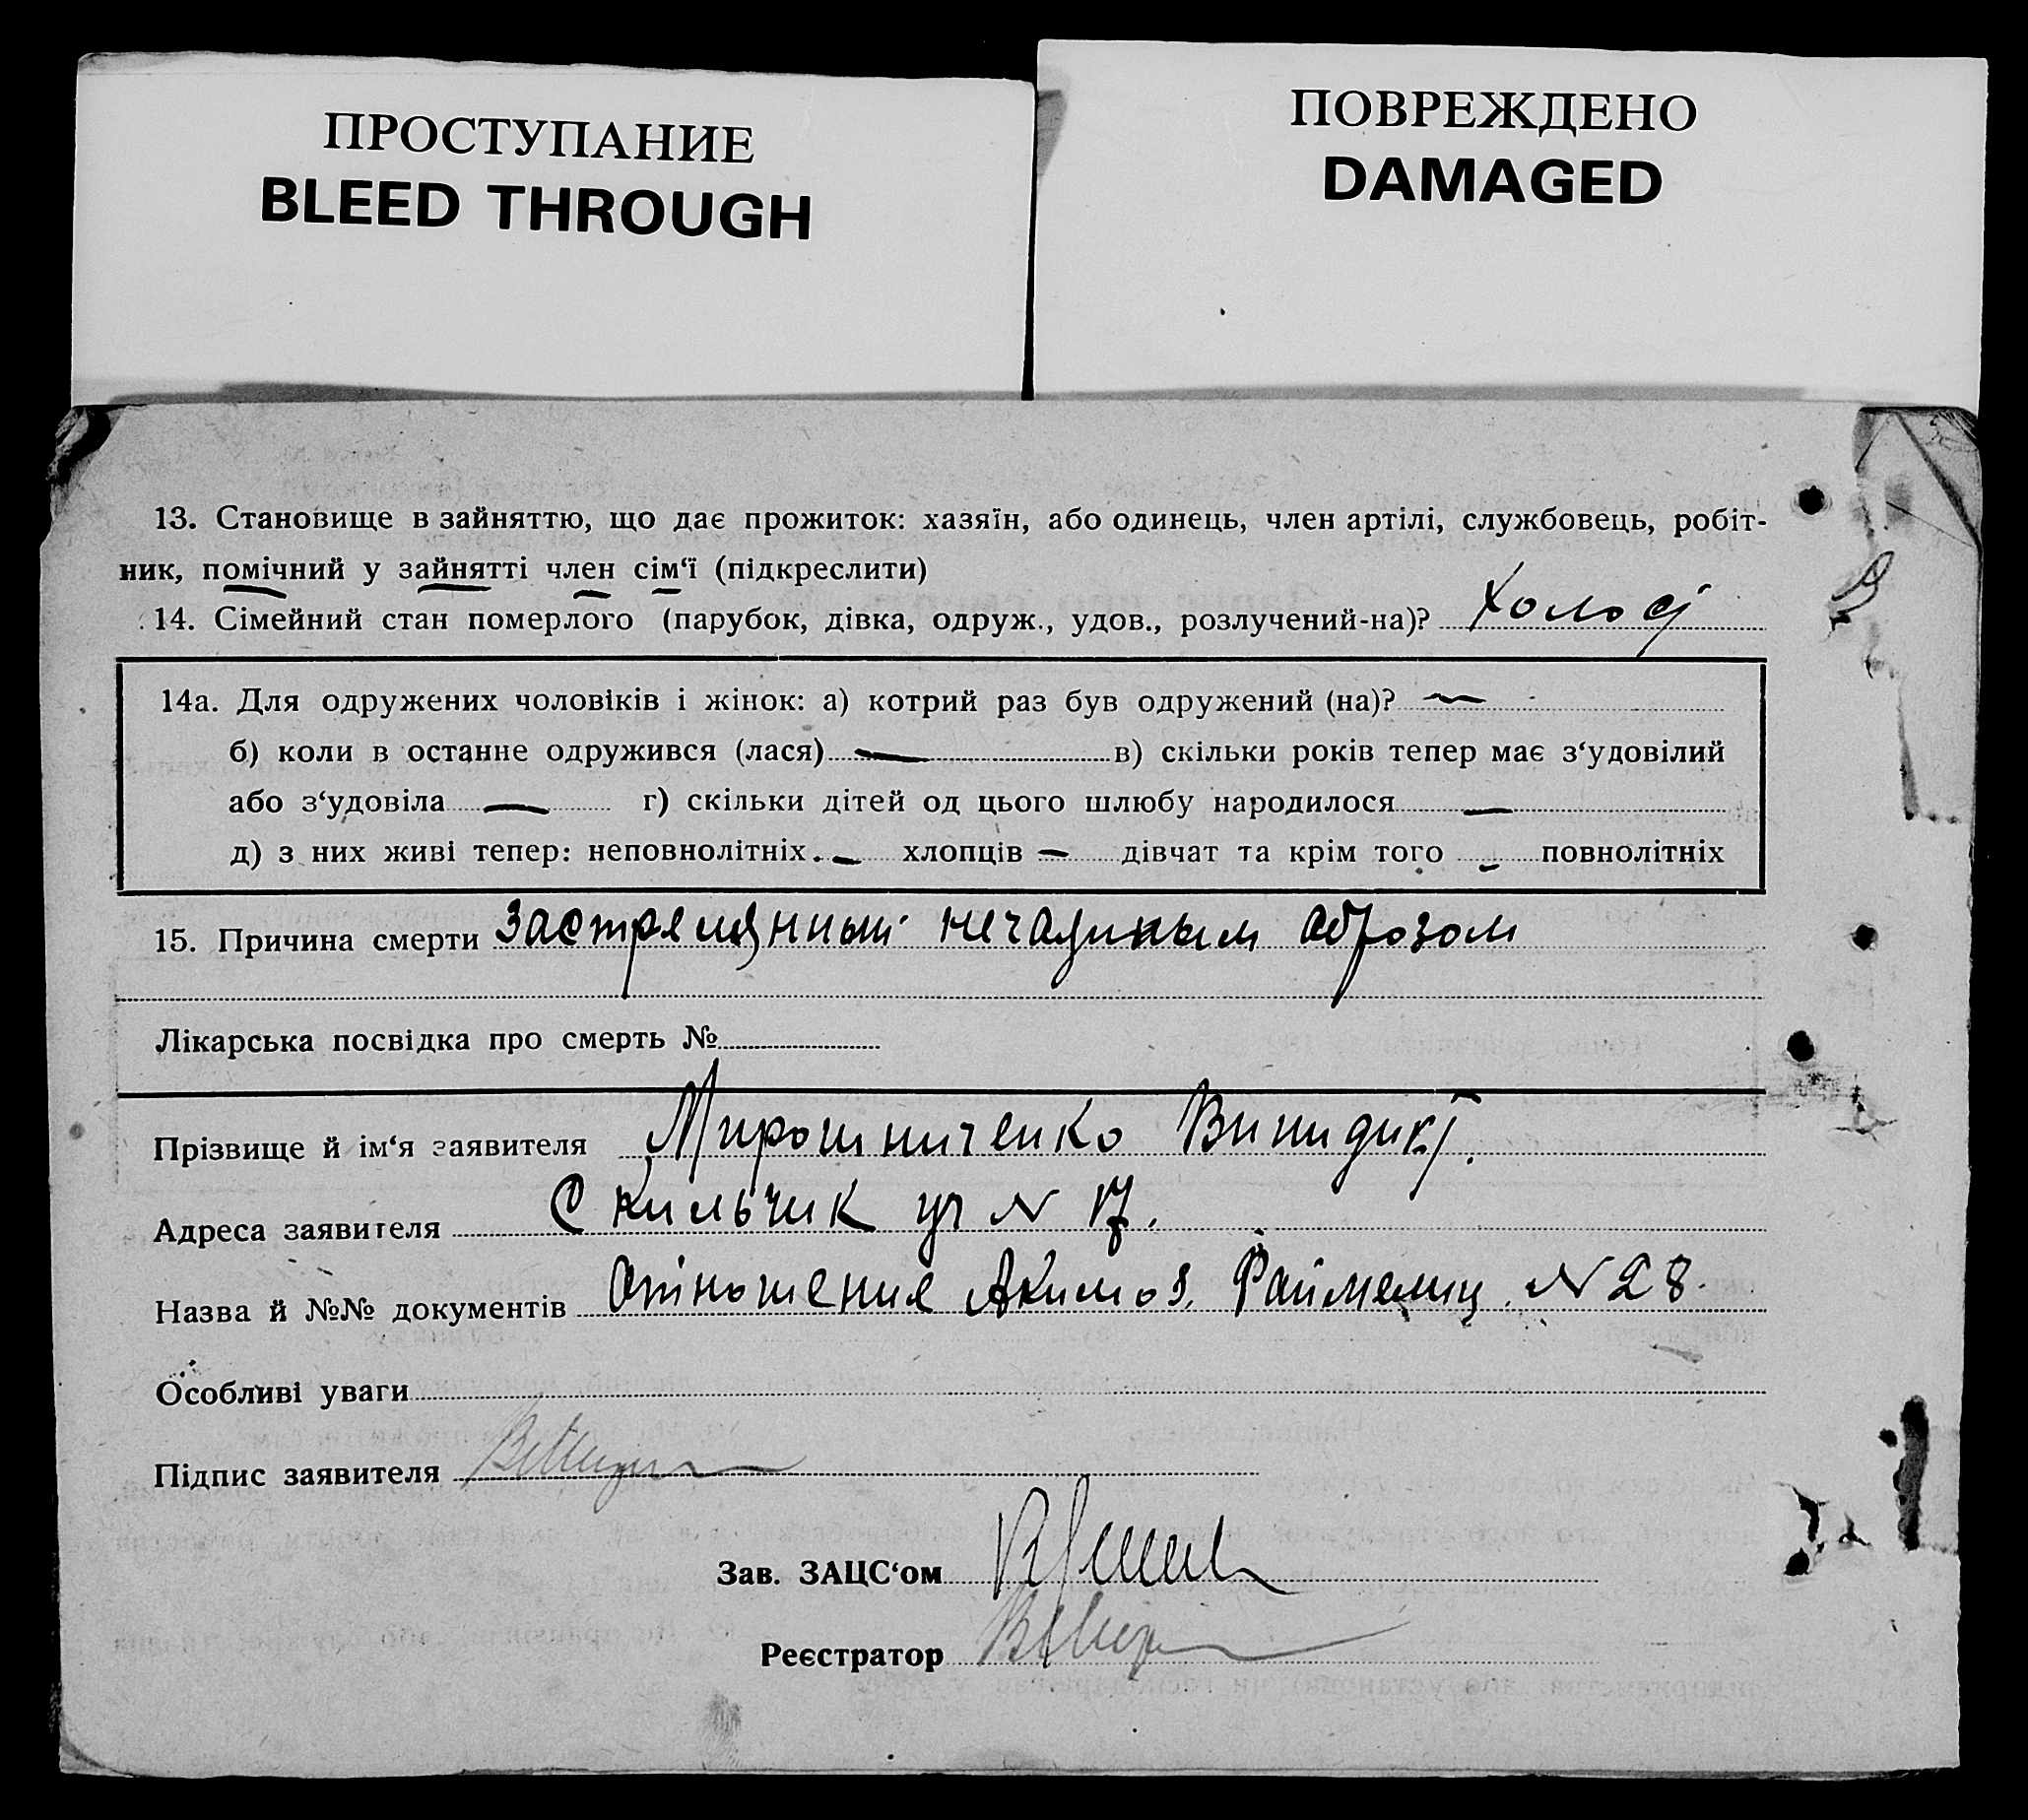 ПРОСТУПАНИЕ
BLEED THROUGH
ПОВРЕЖДЕНО
DAMAGED
13. Становище в зайняттю, що дає прожиток: хазяїн, або одинець, член артілі, службовець, робіт-
ник, помічний у зайнятті член сім‘ї (підкреслити)
14. Сімейний стан померлого (парубок, дівка, одруж., удов., розлучений-на)? Холост
14а. Для одружених чоловіків і жінок: а) котрий раз був одружений (на)? —
б) коли в останне одружився (лася) — в) скільки років тепер має з‘удовілий
або з‘удовіла — г) скільки дітей од цього шлюбу народилося —
д) з них живі тепер: неповнолітніх — хлопців — дівчат та крім того - повнолітніх
15. Причина смерти застрелянный нечаяным образом
Лікарська посвідка про смерть №
Прізвище й ім‘я заявителя Мирошниченко
Адреса заявителя С уч N 17.
Назва й №№ документів отношение Акимов. N 28.
Особливі уваги
Підпис заявителя
Зав. ЗАЦС‘ом
Реєстратор